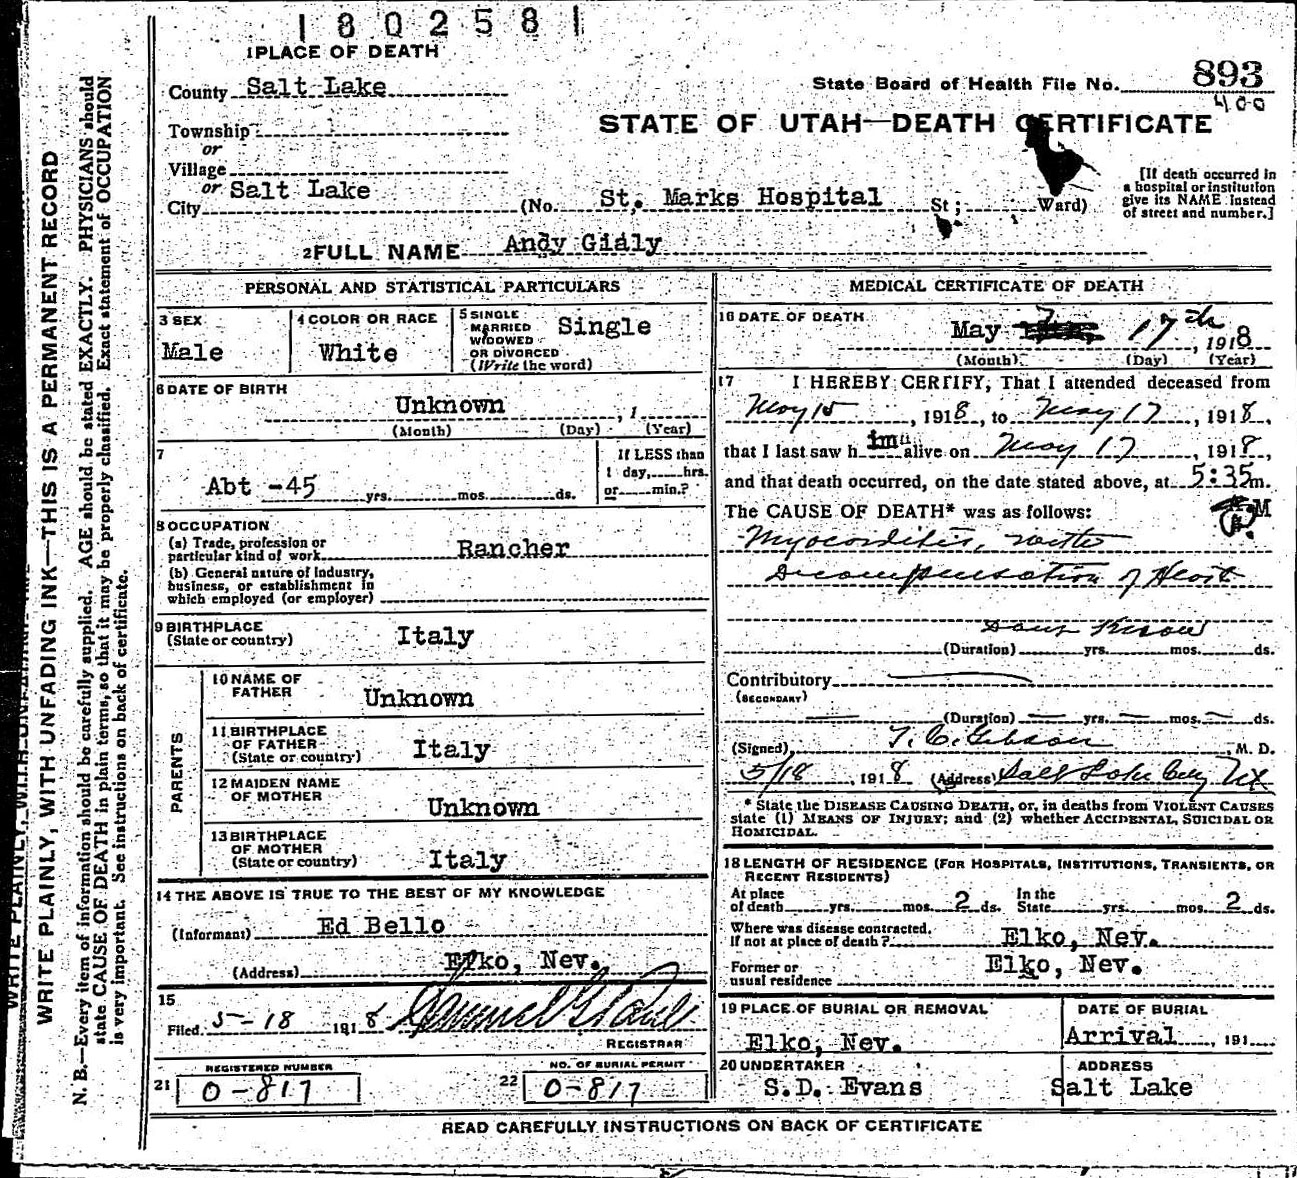 1 8 0 2 5 8 1
1 PLACE OF DEATH
County Salt Lake
State Board of Health File No. 893
400
Township
or
Village
or
City Salt Lake
STATE OF UTAH—DEATH CERTIFICATE
(No. St. Marks Hospital St; Ward)
[If death occurred in
a hospital or institution
give its NAME instead
of street and number.]
2 FULL NAME Andy Gialy
PERSONAL AND STATISTICAL PARTICULARS
3 SEX
Male
4 COLOR OR RACE
White
5 SINGLE
MARRIED
WIDOWED
OR DIVORCED
(Write the word)
Single
6 DATE OF BIRTH
Unknown , 1
(Month) (Day) (Year)
7
Abt -45 yrs. mos. ds.
If LESS than
1 day, hrs.
or min.?
8 OCCUPATION
(a) Trade, profession or
particular kind of work Rancher
(b) General nature of Industry,
business, or establishment in
which employed (or employer)
9 BIRTHPLACE
(State or country) Italy
PARENTS
10 NAME OF
FATHER Unknown
11 BIRTHPLACE
OF FATHER
(State or country) Italy
12 MAIDEN NAME
OF MOTHER Unknown
13 BIRTHPLACE
OF MOTHER
(State or country) Italy
14 THE ABOVE IS TRUE TO THE BEST OF MY KNOWLEDGE
(Informant) Ed Bello
(Address) Elko, Nev.
15
Filed 5-18 1918
REGISTRAR
REGISTERED NUMBER
21 0-817
NO. OF BURIAL PERMIT
22 0-817
MEDICAL CERTIFICATE OF DEATH
16 DATE OF DEATH
May 17th , 1918
(Month) (Day) (Year)
17 I HEREBY CERTIFY, That I attended deceased from
May 15 , 1918, to May 17 , 1918,
that I last saw him alive on May 17 , 1918,
and that death occurred, on the date stated above, at 5:35 m.
P.M
The CAUSE OF DEATH* was as follows:
Myocarditis, with
Decompensation of Heart
(Duration) yrs. mos. ds.
Contributory
(SECONDARY)
(Duration) yrs. mos. ds.
(Signed) T. C. Gibson , M. D.
5/18 , 1918 (Address) Salt Lake City Ut
* State the DISEASE CAUSING DEATH, or, in deaths from VIOLENT CAUSES
state (1) MEANS OF INJURY; and (2) whether ACCIDENTAL, SUICIDAL OR
HOMICIDAL.
18 LENGTH OF RESIDENCE (FOR HOSPITALS, INSTITUTIONS, TRANSIENTS, OR
RECENT RESIDENTS)
At place
of death yrs. mos. 2 ds.
In the
State yrs. mos. 2 ds.
Where was disease contracted.
If not at place of death? Elko, Nev.
Former or
usual residence Elko, Nev.
19 PLACE OF BURIAL OR REMOVAL
Elko, Nev.
DATE OF BURIAL
Arrival , 191
20 UNDERTAKER
S.D. Evans
ADDRESS
Salt Lake
READ CAREFULLY INSTRUCTIONS ON BACK OF CERTIFICATE
WRITE PLAINLY, WITH UNFADING INK—THIS IS A PERMANENT RECORD
N. B.—Every item of information should be carefully supplied. AGE should be stated EXACTLY. PHYSICIANS should
state CAUSE OF DEATH in plain terms, so that it may be properly classified. Exact statement of OCCUPATION
is very important. See instructions on back of certificate.